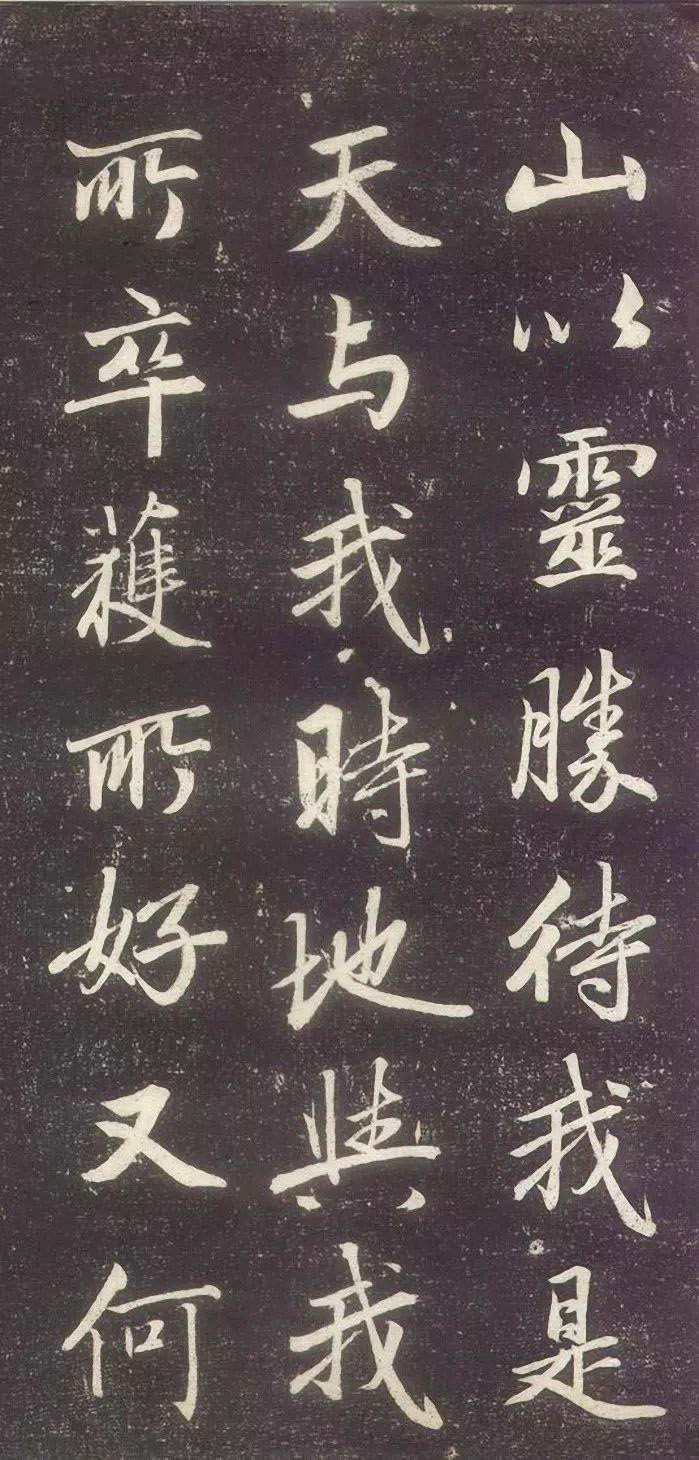 山以靈勝待我是
天与我時地與我
所卒獲所好又何